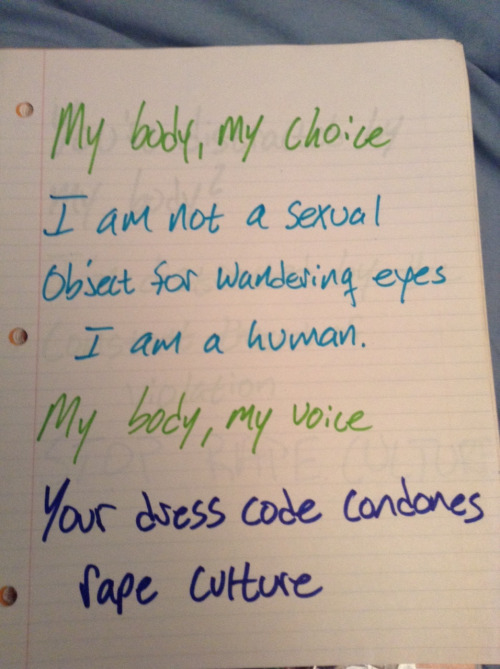 My body, my choice
I am not a sexual
Object for wandering eyes
I am a human.
My body, my voice
Your dress code condones
rape culture